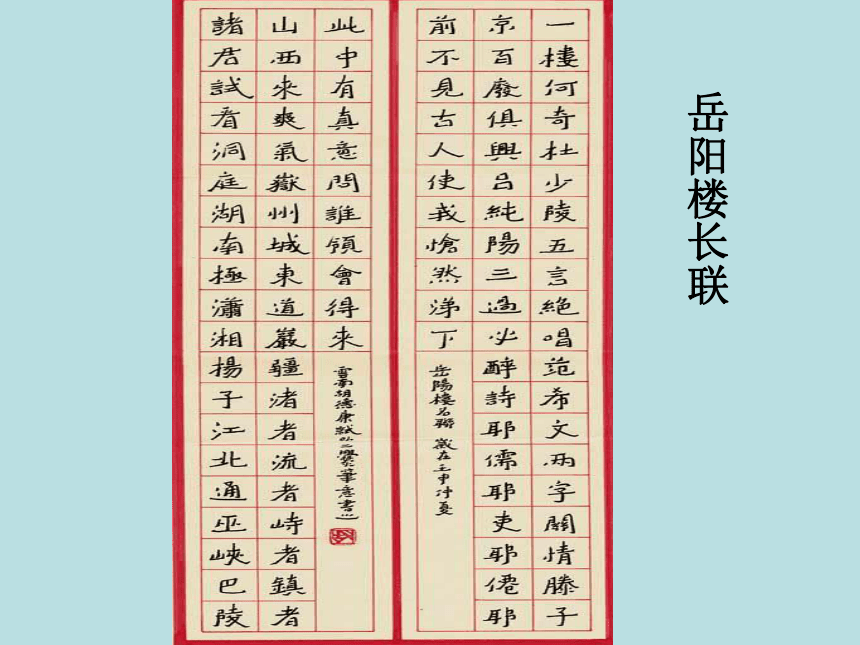 岳阳楼长联
一樓何奇杜少陵五言絕唱范希文兩字關情滕子
京百廢俱興呂純陽三過必醉詩耶儒耶吏耶僊耶
前不見古人使我愴然涕下
岳陽樓名聯 歲在壬申仲夏
諸君試看洞庭湖南極瀟湘揚子江北通巫峽巴陵
山西來爽氣嶽州城東道巖疆渚者流者峙者鎮者
此中有真意問誰領會得來
雲南胡德康試以二爨筆意書之